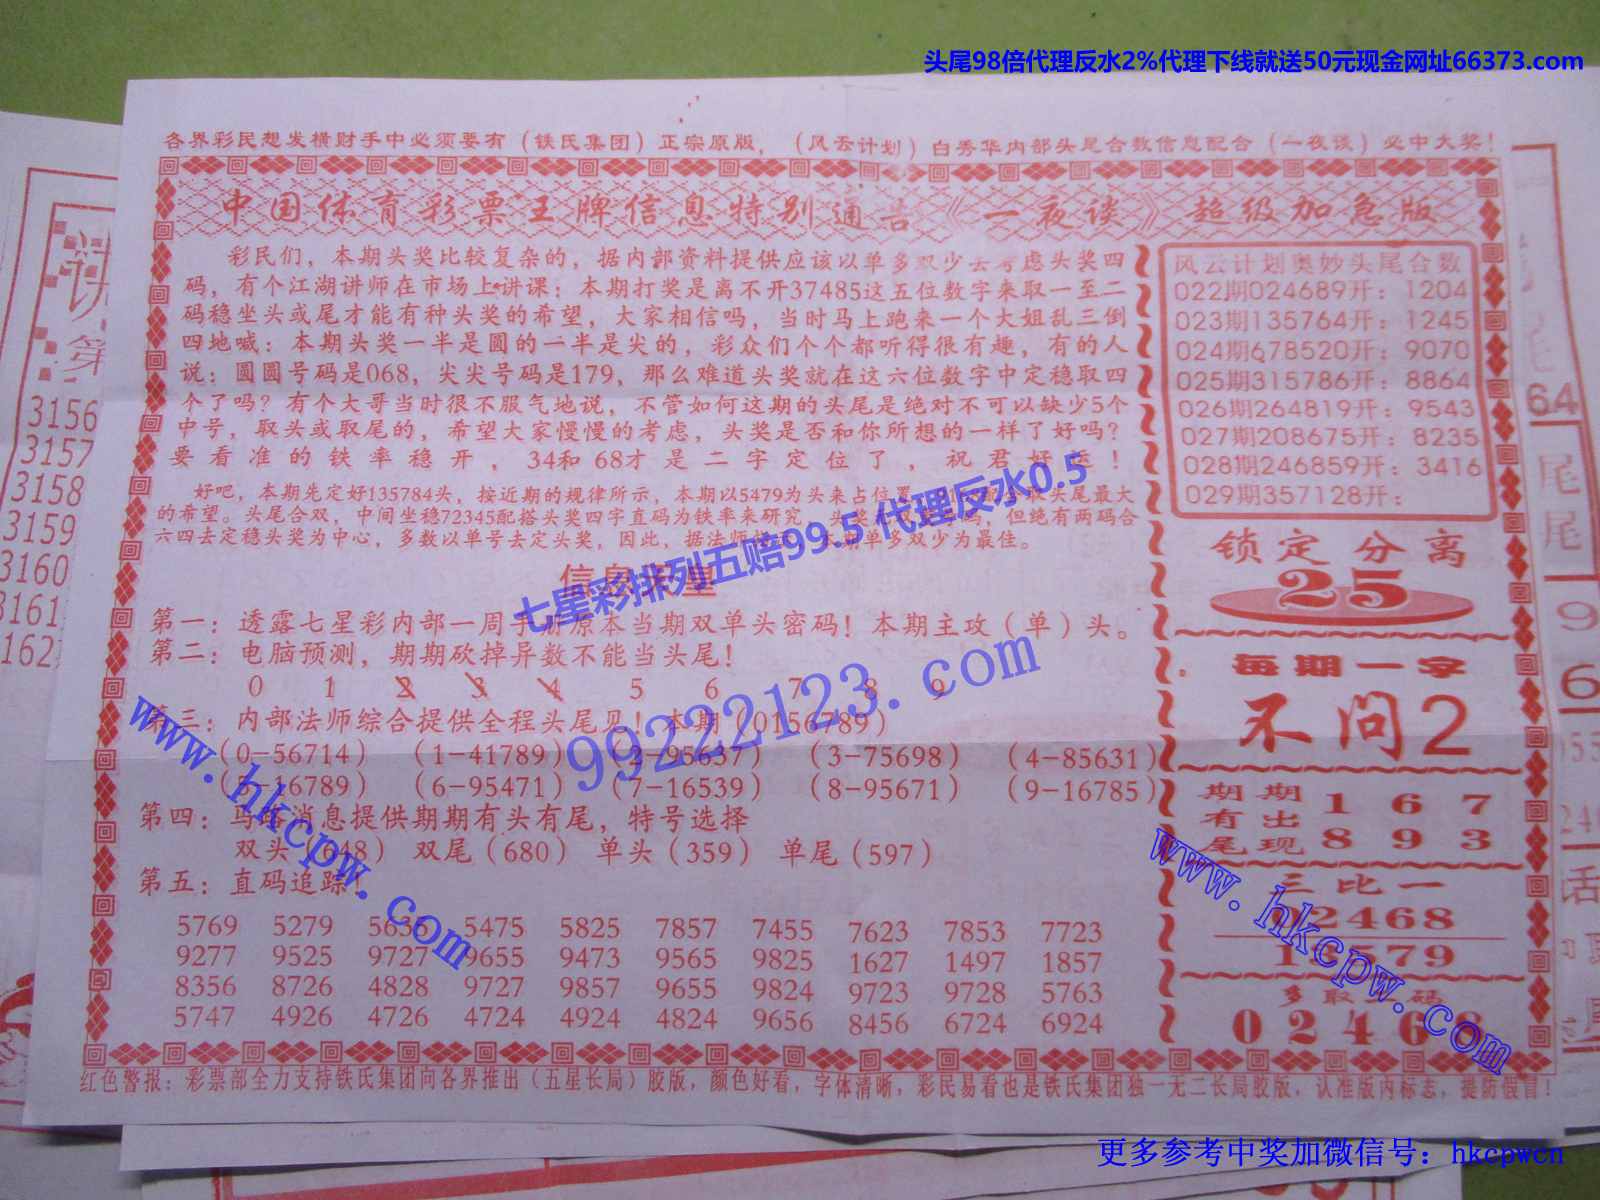 头尾98倍代理反水2%代理下线就送50元现金网址66373.com
各界彩民想发横财手中必须要有（铁氏集团）正宗原版，（风云计划）白秀华内部头尾合数信息配合（一夜谈）必中大奖！
中国体育彩票王牌信息特别通告《一夜谈》超级加急版
彩民们，本期头奖比较复杂的，据内部资料提供应该以单多双少去考虑头奖四
码，有个江湖讲师在市场上讲课：本期打奖是离不开37485这五位数字来取一至二
码稳坐头或尾才能有种头奖的希望，大家相信吗，当时马上跑来一个大姐乱三倒
四地喊：本期头奖一半是圆的一半是尖的，彩众们个个都听得很有趣，有的人
说：圆圆号码是068，尖尖号码是179，那么难道头奖就在这六位数字中定稳取四
个了吗？有个大哥当时很不服气地说，不管如何这期的头尾是绝对不可以缺少5个
中号，取头或取尾的，希望大家慢慢的考虑，头奖是否和你所想的一样了好吗？
要看准的铁率稳开，34和68才是二字定位了，祝君好运！
好吧，本期先定好135784头，按近期的规律所示，本期以5479为头来占位置 取头尾最大
的希望。头尾合双，中间坐稳72345配搭头奖四字直码为铁率来研究 头奖 但绝有两码合
六四去定稳头奖为中心，多数以单号去定头奖，因此，据法师 本期单多双少为最佳。
七星彩排列五赔99.5代理反水0.5
第一：透露七星彩内部一周 原本当期双单头密码！本期主攻（单）头。
第二：电脑预测，期期砍掉异数不能当头尾！
0 1 2 3 4 5 6 7 8 9
第三：内部法师综合提供全程头尾见！本期（0156789）
（0-56714）（1-41789）（2-95637）（3-75698）（4-85631）
（5-16789）（6-95471）（7-16539）（8-95671）（9-16785）
第四：马路消息提供期期有头有尾，特号选择
双头（648）双尾（680）单头（359）单尾（597）
第五：直码追踪！
5769 5279 5635 5475 5825 7857 7455 7623 7853 7723
9277 9525 9727 9655 9473 9565 9825 1627 1497 1857
8356 8726 4828 9727 9857 9655 9824 9723 9728 5763
5747 4926 4726 4724 4924 4824 9656 8456 6724 6924
风云计划奥妙头尾合数
022期024689开：1204
023期135764开：1245
024期678520开：9070
025期315786开：8864
026期264819开：9543
027期208675开：8235
028期246859开：3416
029期357128开：
锁定分离
25
每期一字
不问2
期期 1 6 7
有出
尾现 8 9 3
三比一
02468
13579
多取 码
02468
红色警报：彩票部全力支持铁氏集团向各界推出（五星长局）胶版，颜色好看，字体清晰，彩民易看也是铁氏集团独一无二长局胶版，认准版内标志，提防假冒！
99222123.com
www.hkcpw.com
www.hkcpw.com
更多参考中奖加微信号：hkcpwcn
第
3156
3157
3158
3159
3160
3161
3162
64
尾
尾
9
6